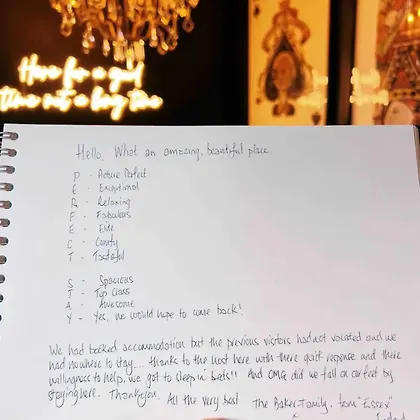 Here for a good
time not a long time
Hello, What an amazing, beautiful place.
P - Picture Perfect
E - Exceptional
R - Relaxing
F - Fabulous
E - Elite
C - Comfy
T - Tasteful
S - Spacious
T - Top Class
A - Awesome
Y - Yes, we would hope to come back!
We had booked accommodation but the previous visitors had not vacated and we
had nowhere to stay.... thanks to the host here with there quick response and there
willingness to help, we got to sleep in beds!! And OMG did we fall on our feet by
staying here. Thankyou. All the very best The Baker Family, from "Essex"